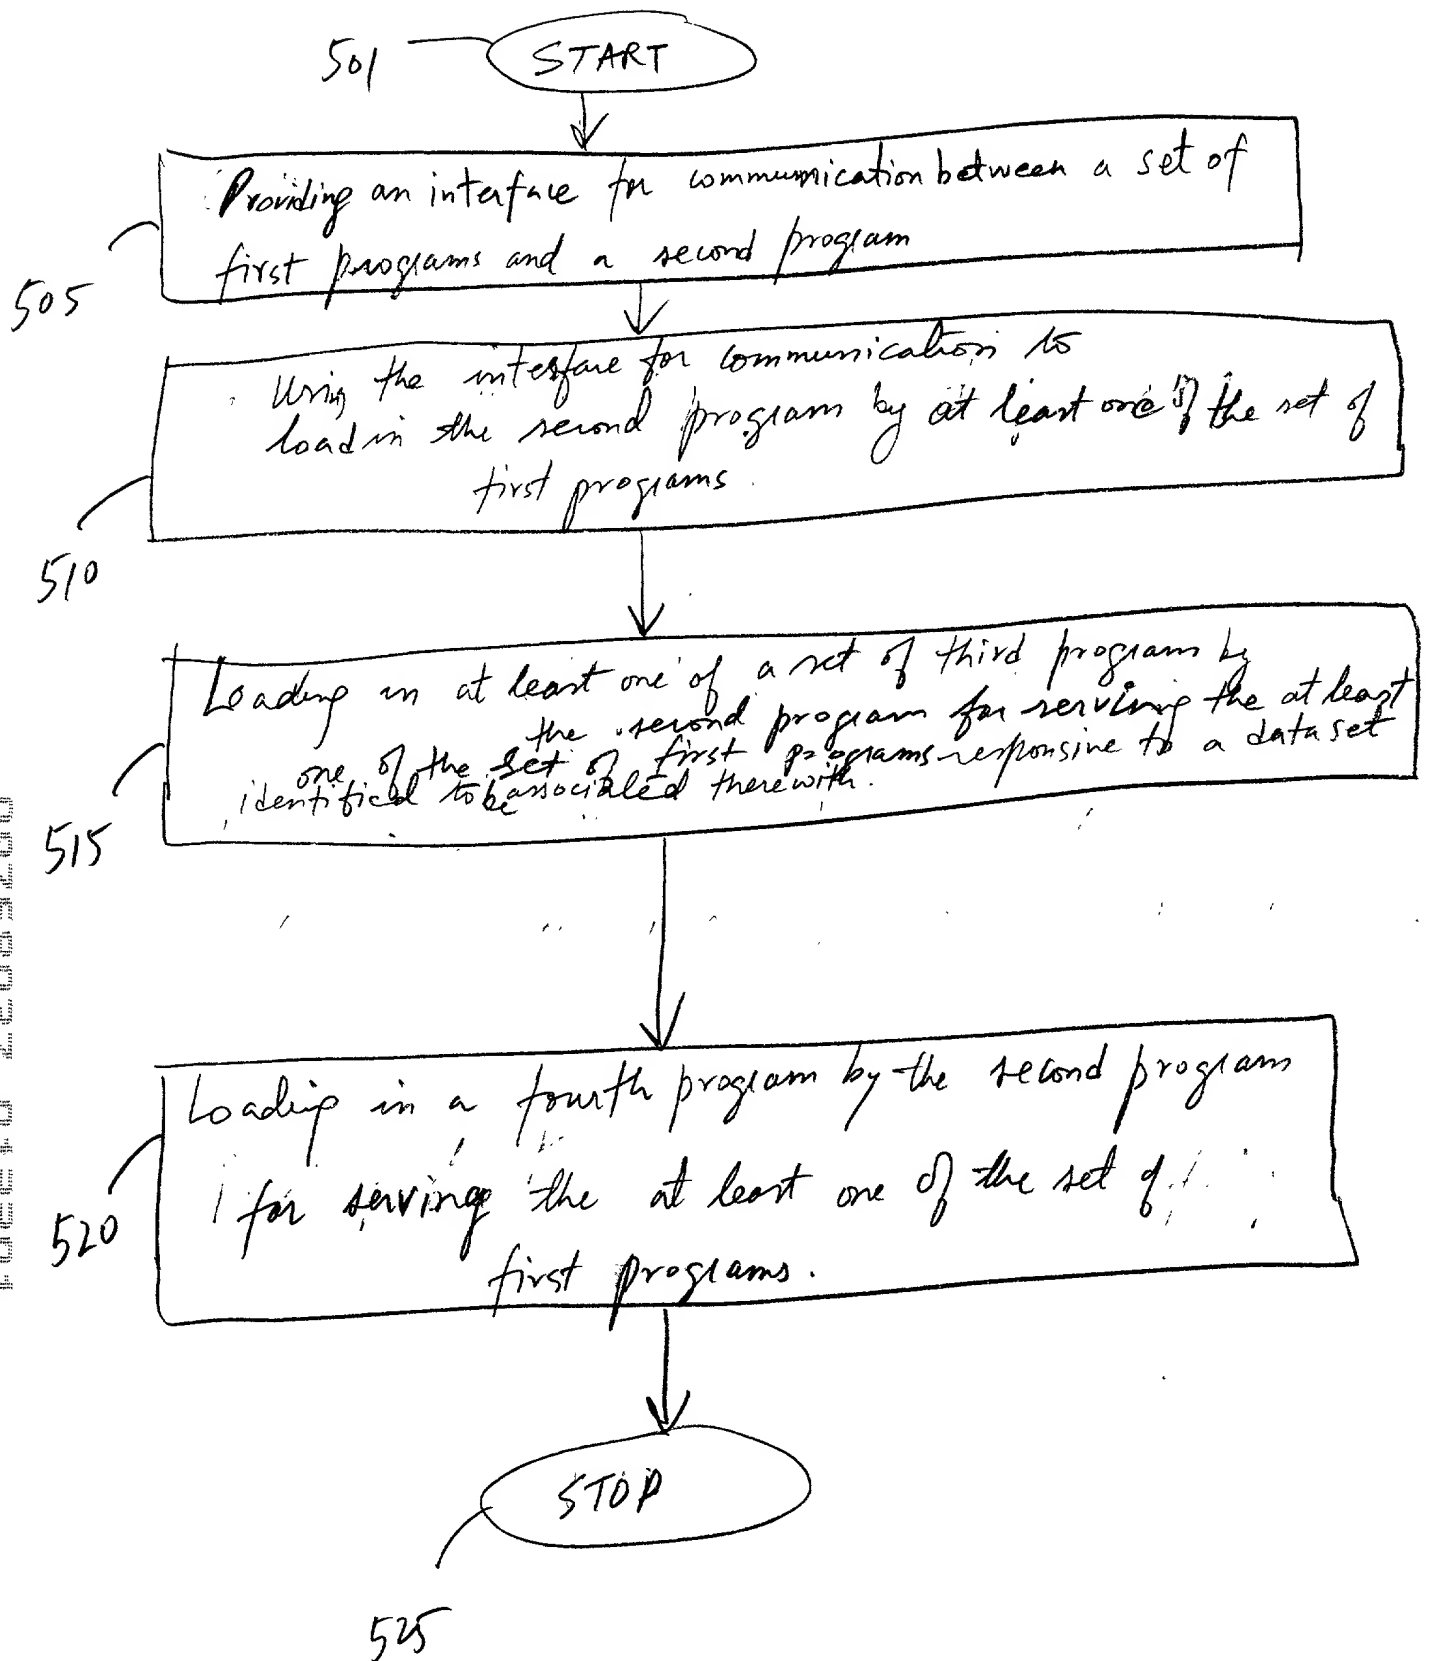 501
START
Providing an interface for communication between a set of
first programs and a second program
505
Using the interface for communication to
load in the second program by at least one of the set of
first programs.
510
Loading in at least one of a set of third program by
the second program for serving the at least
one of the set of first programs responsive to a data set
identified to be associated therewith.
515
Loading in a fourth program by the second program
for serving the at least one of the set of
first programs.
520
STOP
525